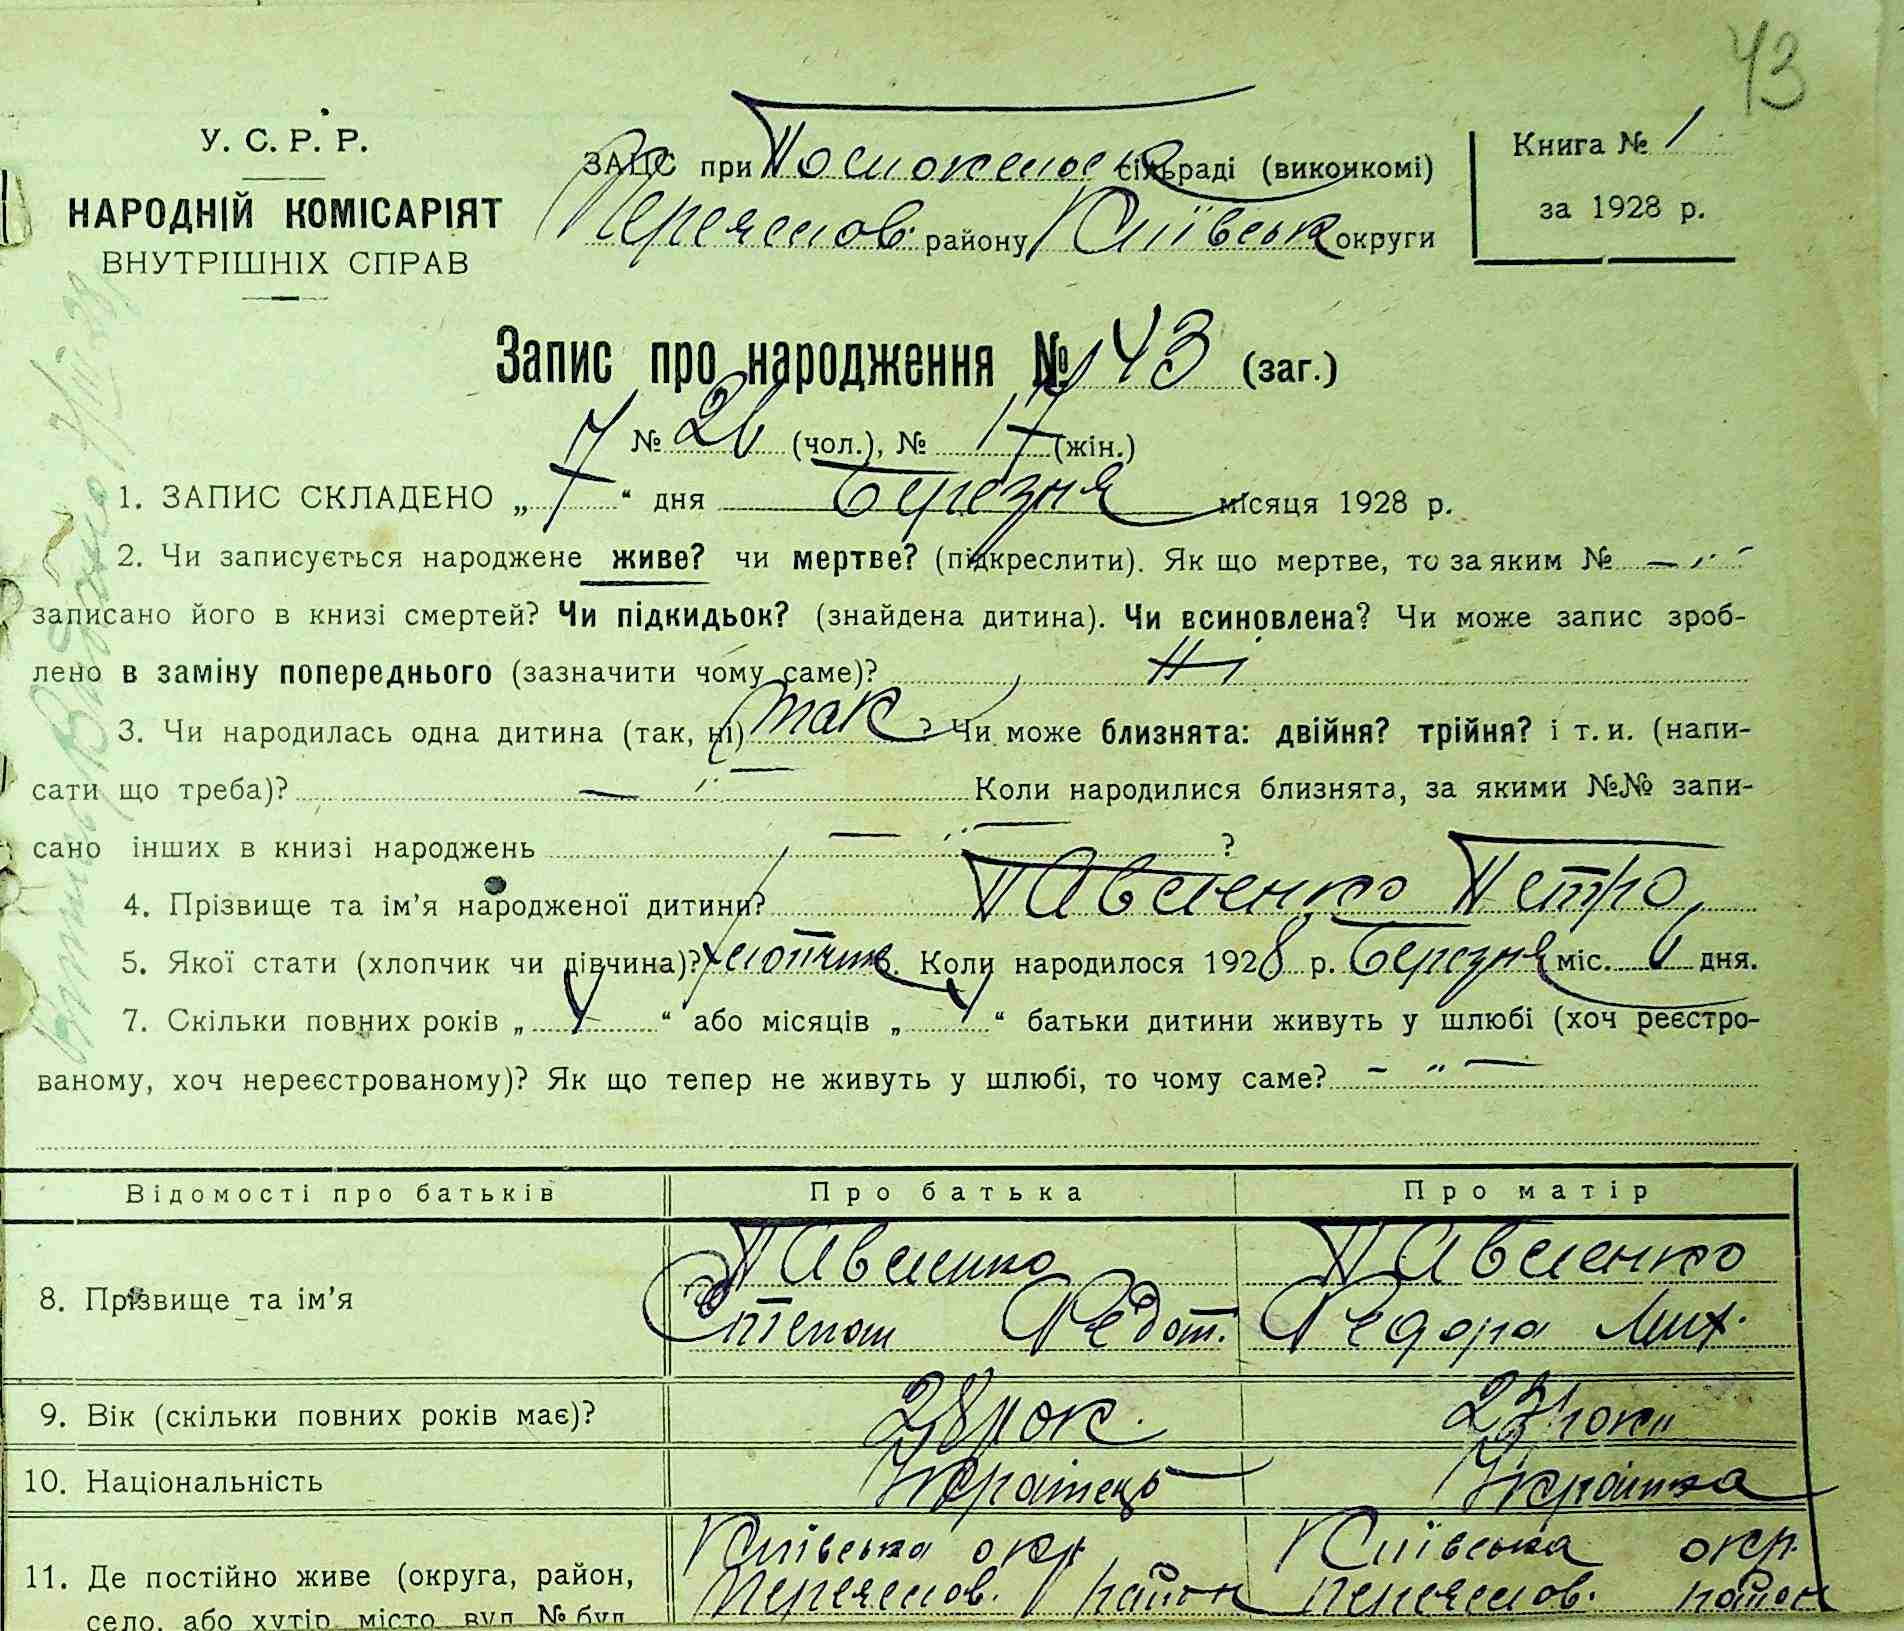 43
У. С. Р. Р.
НАРОДНІЙ КОМІСАРІЯТ
ВНУТРІШНІХ СПРАВ
ЗАЦС при сільраді (виконкомі)
Переяслов. району Київськ округи
Книга № 1
за 1928 р.
Запис про народження № 43 (заг.)
№ 26 (чол.), № 17 (жін.)
1. ЗАПИС СКЛАДЕНО „ 7 “ дня Березня місяця 1928 р.
2. Чи записується народжене живе? чи мертве? (підкреслити). Як що мертве, то за яким № — „ —
записано його в книзі смертей? Чи підкидьок? (знайдена дитина). Чи всиновлена? Чи може запис зроб-
лено в заміну попереднього (зазначити чому саме)? Ні
3. Чи народилась одна дитина (так, ні) так ? Чи може близнята: двійня? трійня? і т. и. (напи-
сати що треба)? — „ — Коли народилися близнята, за якими №№ запи-
сано інших в книзі народжень — „ — ?
4. Прізвище та ім'я народженої дитини? Павленко Петро
5. Якої стати (хлопчик чи дівчина)? хлопчик 6. Коли народилося 1928 р. Березня міс. 6 дня.
7. Скільки повних років „ “ або місяців „ “ батьки дитини живуть у шлюбі (хоч реєстро-
ваному, хоч нереєстрованому)? Як що тепер не живуть у шлюбі, то чому саме? — „ —
Відомості про батьків Про батька Про матір
8. Прізвище та ім'я Павленко Степан Федот. Павленко Федора Мих.
9. Вік (скільки повних років має)? 28 рок. 23 роки
10. Національність Українець Українка
11. Де постійно живе (округа, район, Київська окр. Київська окр.
село, або хутір, місто, вул. № буд. Переяслов. район Переяслов. район